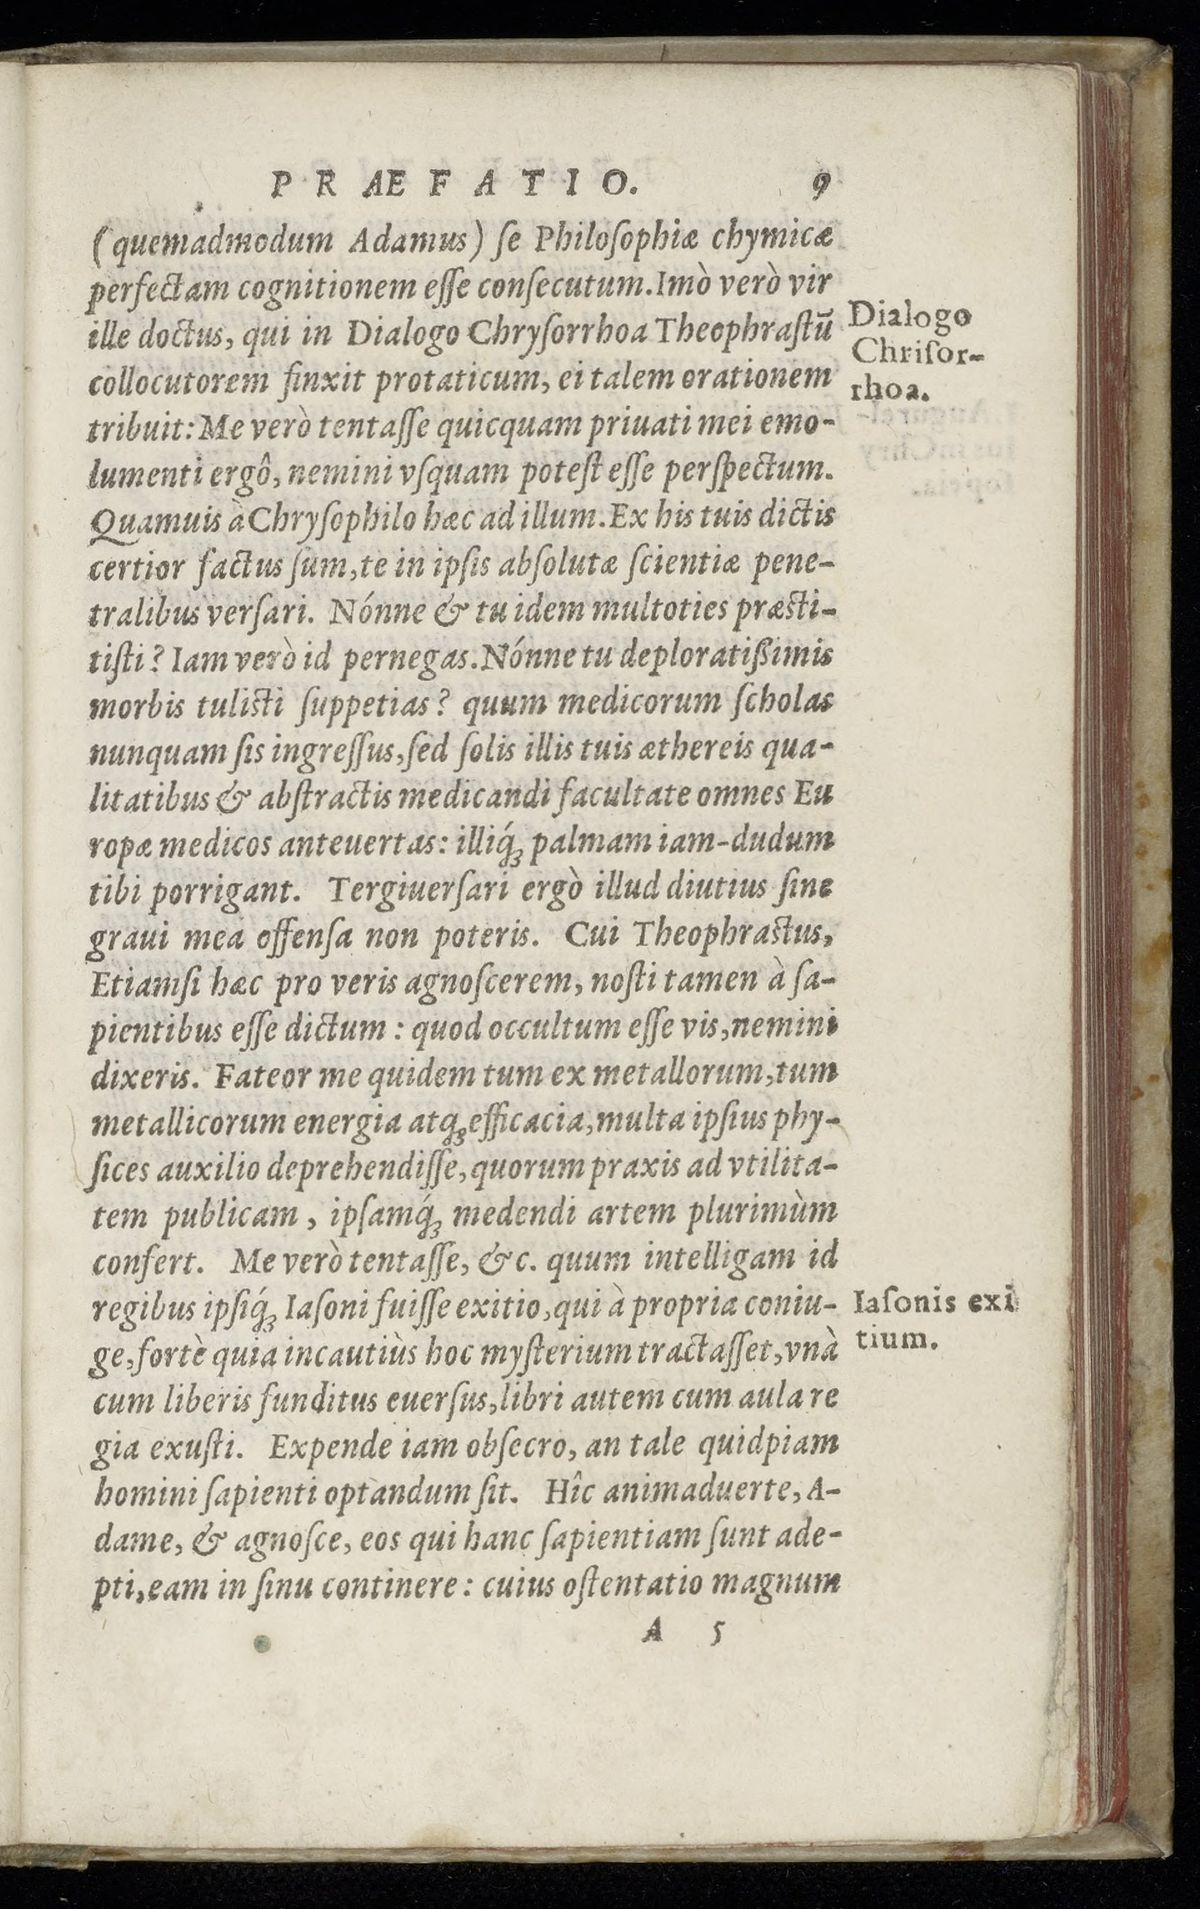 PRÆFATIO. 9
(quemadmodum Adamus) ſe Philoſophiæ chymicæ
perfectam cognitionem eſſe conſecutum. Imò verò vir
ille doctus, qui in Dialogo Chryſorrhoa Theophraſtū
collocutorem finxit protaticum, ei talem orationem
tribuit: Me verò tentaſſe quicquam priuati mei emo-
lumenti ergô, nemini vſquam poteſt eſſe perſpectum.
Quamuis à Chryſophilo hæc ad illum. Ex his tuis dictis
certior factus ſum, te in ipſis abſolutæ ſcientiæ pene-
tralibus verſari. Nónne & tu idem multoties præſti-
tiſti? Iam verò id pernegas. Nónne tu deploratißimis
morbis tuliſti ſuppetias? quum medicorum ſcholas
nunquam ſis ingreſſus, ſed ſolis illis tuis æthereis qua-
litatibus & abſtractis medicandi facultate omnes Eu
ropæ medicos anteuertas: illiq́ꝫ palmam iam-dudum
tibi porrigant. Tergiuerſari ergò illud diutius ſine
graui mea offenſa non poteris. Cui Theophraſtus,
Etiamſi hæc pro veris agnoſcerem, noſti tamen à ſa-
pientibus eſſe dictum: quod occultum eſſe vis, nemini
dixeris. Fateor me quidem tum ex metallorum, tum
metallicorum energia atqꝫ efficacia, multa ipſius phy-
ſices auxilio deprehendiſſe, quorum praxis ad vtilita-
tem publicam, ipſamq́ꝫ medendi artem plurimùm
confert. Me verò tentaſſe, &c. quum intelligam id
regibus ipſiq́ꝫ Iaſoni fuiſſe exitio, qui à propria coniu-
ge, fortè quia incautiùs hoc myſterium tractaſſet, vnà
cum liberis funditus euerſus, libri autem cum aula re
gia exuſti. Expende iam obſecro, an tale quidpiam
homini ſapienti optandum ſit. Hîc animaduerte, A-
dame, & agnoſce, eos qui hanc ſapientiam ſunt ade-
pti, eam in ſinu continere: cuius oſtentatio magnum
A 5
Dialogo
Chriſor-
rhoa.
Iaſonis exi
tium.